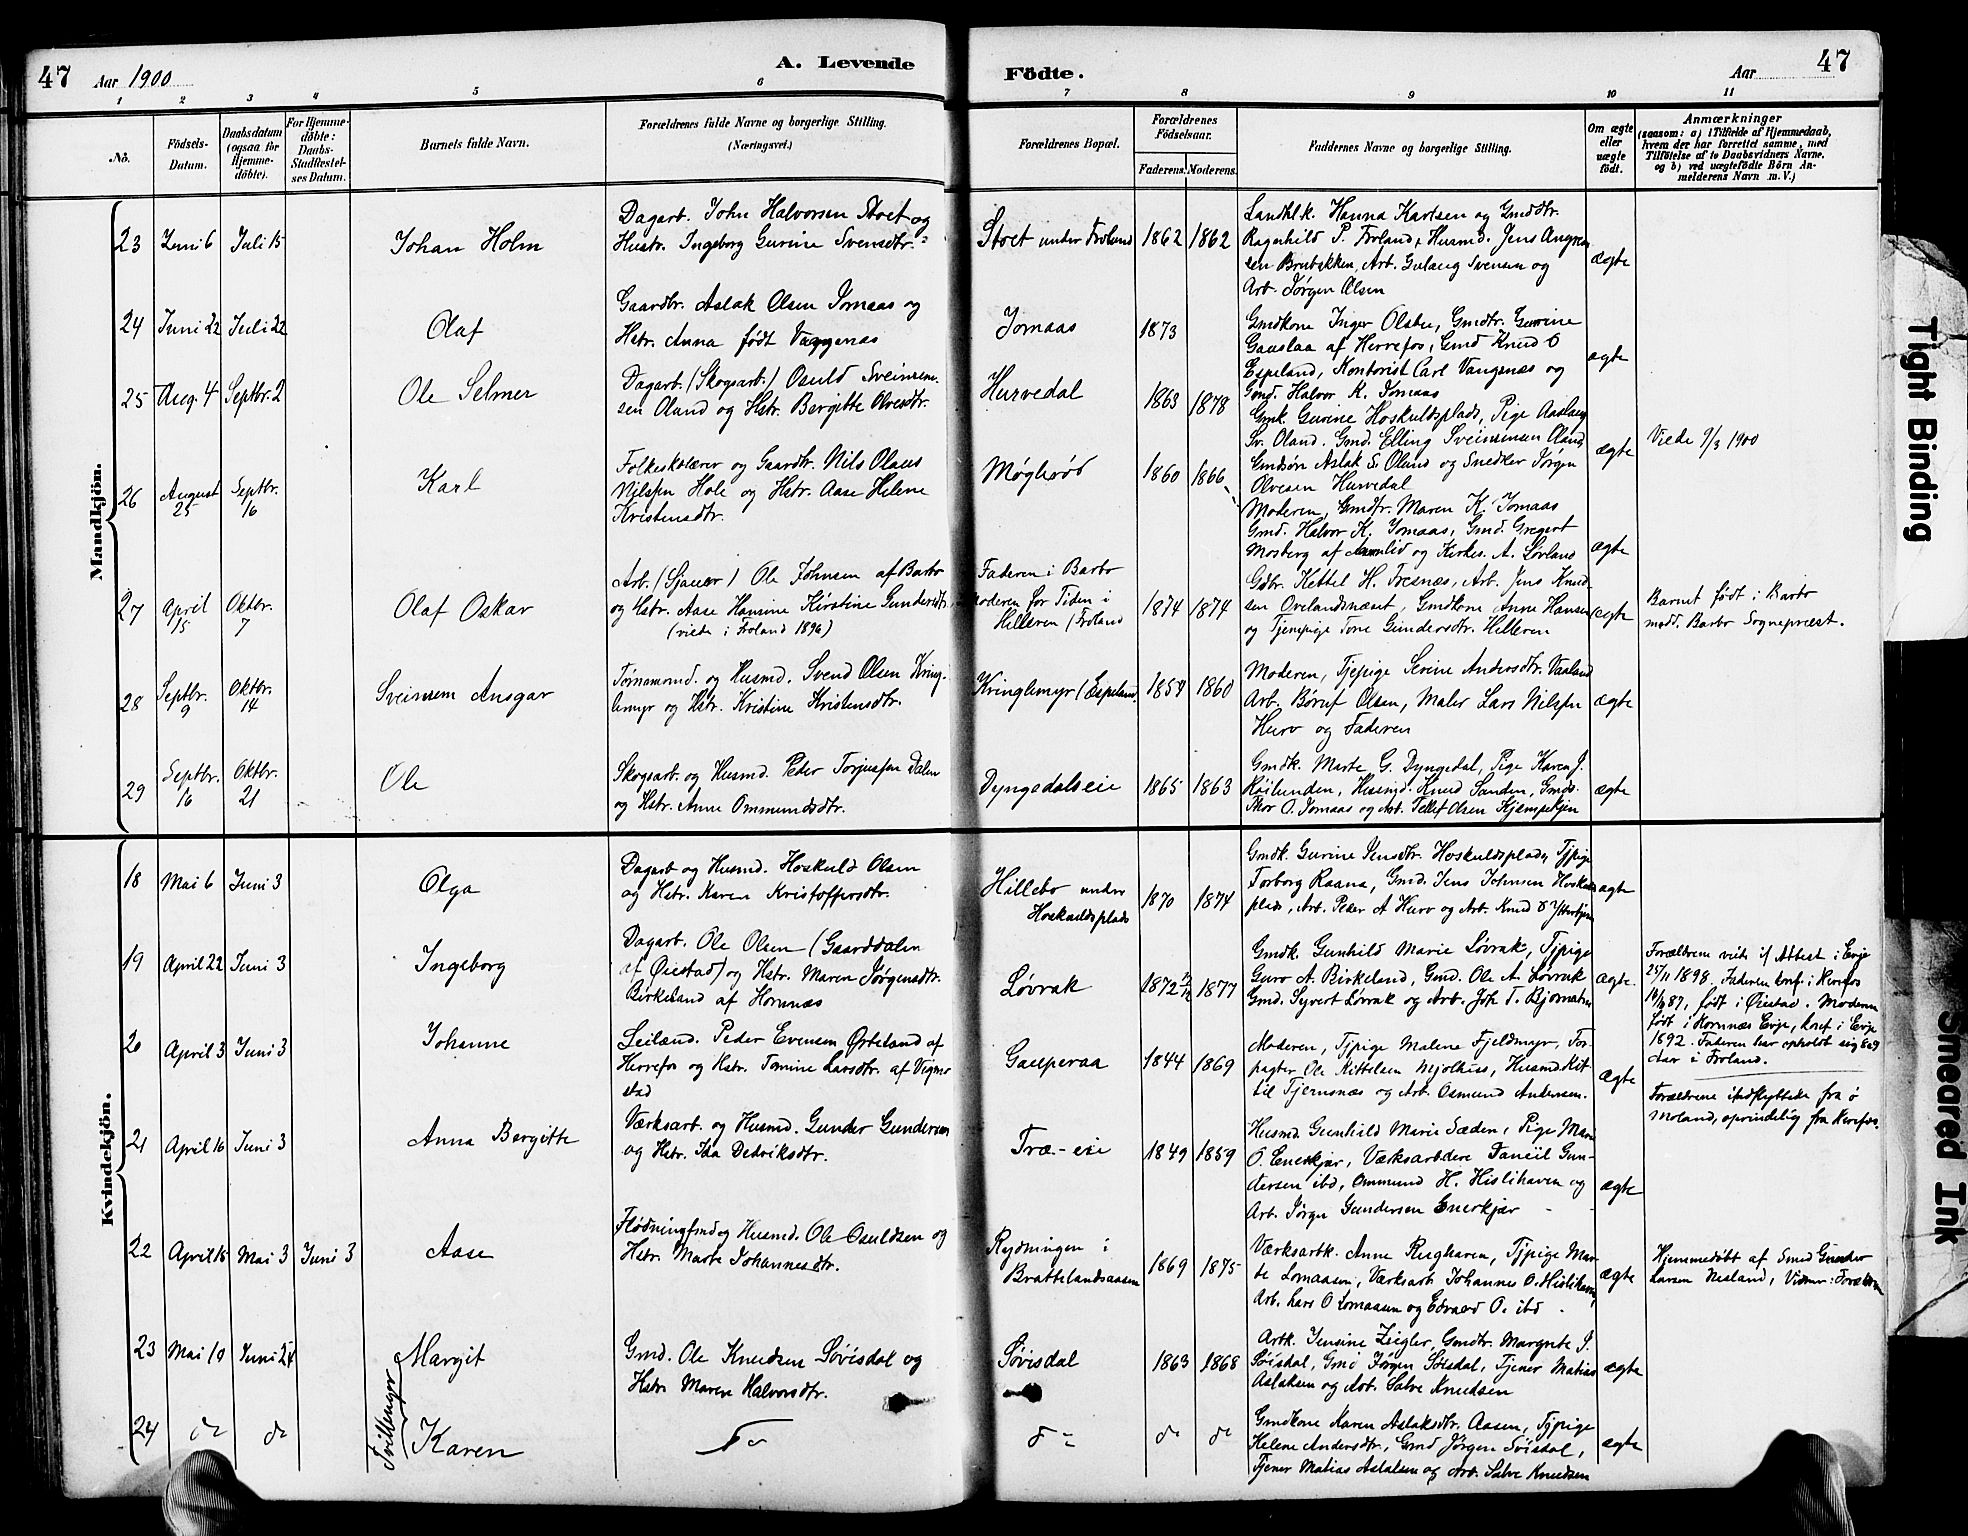 47 Aar 1900 A. Levende Födte. Aar 47
1 2 3 4 5 6 7 8 9 10 11
No.
Födsels-
Datum.
Daabsdatum
(ogsaa for
Hjemme-
döbte).
For Hjemme-
döbte:
Daabs-
Stadfæstel-
ses Datum.
Barnets fulde Navn.
Forældrenes fulde Navne og borgerlige Stilling.
(Næringsvei.)
Forældrenes Bopæl.
Forældrenes
Födselsaar.
Faderens. Moderens.
Faddernes Navne og borgerlige Stilling.
Om ægte
eller
uægte
födt.
Anmærkninger
(saasom: a) i Tilfælde af Hjemmedaab,
hvem der har forrettet samme, med
Tilföielse af to Daabsvidners Navne,
og b) ved uægtefödte Börn An-
melderens Navn m. V.)
Mandkjön.
23 Juni 6 Juli 15 Johan Holm
Dagarb. John Halvorsen Stoet og
Hustr. Ingeborg Gurine Svensdtr.
Stoet under Froland 1862 1862
Landhlk. Hanna Karlsen og Gmddtr.
Ragnhild P. Froland, Husmd. Jens
sen Brubakken, Arb. Svensen og
Arb. Jørgen Olsen
ægte
24 Juni 22 Juli 22 Olaf
Gaardbr. Aslak Olsen Jomaas og
Hstr. Anna født
Jomaas 1873
Gmdkone Inger Olsbu, Gmdtr. Gurine
Gauslaa af Herrefos, Gmd Knud O
Espeland, Kontorist Carl Vangsnæs og
Gmd. Halvor K. Jomaas
ægte
25 Aug. 4 Septbr. 2 Ole Selmer
Dagarb. (Skogsarb.) Osuld Sveinsen-
sen Oland og Hstr. Bergitte Olvesdtr.
Hurvedal 1863 1878
Gmk. Gurine Hoskuldsplads, Pige Aaslaug
Sv. Oland. Gmd. Elling Sveinsensen Oland
Gmdsøn Aslak S. Oland og Snedker Jørgen
Olvesen Hurvedal
ægte
Viede 9/3 1900
26 August 25 Septbr. 16 Karl
Folkeskolelærer og Gaardbr. Nils Olaus
Nilssen Hole og Hstr. Aase Helene
Kristensdtr.
1860 1866
Moderen, Gmdfr. Maren K. Jomaas
Gmd. Halvor K. Jomaas, Gmd. Gregert
Mosberg af Aamlid og Kirkes. A. Løvland
ægte
27 April 15 Oktbr. 7 Olaf Oskar
Arb. (Sjauer) Ole Johnsen af Barbo
og Hstr. Aase Hansine Kirstine Gundersdtr.
(viede i Froland 1896)
Faderen i Barbo
Moderen for Tiden i
Helleren (Froland
1874 1874
Gdbr. Kettel H. Tresnæs, Arb. Jens Knud-
sen Ovelandsnæset, Gmdkone Anne Hansen
og Tjenpige Tone Gundersdtr. Helleren
ægte
Barnet født i Barbo
medd. Barbo Sognepræst.
28 Septbr. 9 Oktbr. 14 Sveinsem Ansgar
Tømmermd. og Husmd. Svend Olsen Kring-
lemyr og Hstr. Kristine Kristensdtr.
Kringlemyr (Espeland 1854 1860
Moderen, Tjepige Serine Andersdtr. Vaaland
Arb. Børuf Olsen, Maler Lars Nilssen
Hurv og Faderen
ægte
29 Septbr. 16 Oktbr. 21 Ole
Skogsarb. og Husmd. Peder Torjussen Dalen
og Hstr. Anne Ommundsdtr.
Dyngedalseie 1865 1863
Gmdk. Marte G. Dyngedal, Pige Karen J.
Røilunden, Husmd. Knud Sanden, Gmds.
Thor O. Jomaas og Arb. Tellef Olsen Kjempekjen
ægte
Kvindekjön.
18 Mai 6 Juni 3 Olga
Dagarb og Husmd. Hoskuld Olsen
og Hstr. Karen Kristoffersdtr.
Hillebo under
Hoskuldsplads
1870 1874
Gmdk. Gurine Jensdtr. Hoskuldsplads, Tjpige
Torborg Raana, Gmd. Jens Johnsen Hoskulds-
plads, Arb. Peder A Hurv og Arb. Knud
ægte
19 April 22 Juni 3 Ingeborg
Dagarb. Ole Olsen (Gaarddalen
af Øiestad) og Hstr. Maren Jørgensdtr.
Birkeland af Hornnæs
Løvrak 1872 1877
Gmdk. Gunhild Marie Løvrak, Tjpige
Guro A. Birkeland, Gmd. Ole A. Løvrak
Gmd. Syvert Løvrak og Arb. Joh. T.
ægte.
Forældrene viede if Attest i Evje
25/11 1898. Faderen konf. i Herefos
87, født i Øiestad. Moderen
født i Hornnæs Evje, konf i Evje
1892. Faderen har opholdt sig
i Froland.
20 April 3 Juni 3 Johanne
Leilænd. Peder Evensen Ørteland af
Herrefos og Hstr. Tomine Larsdtr. af Vigmo-
stad
Gauperaa 1844 1869
Moderen, Tjpige Malene Fjeldmyr, For-
pagter Ole Kittelsen Mjølhus, Husmd Kit-
til Tjernsnæs og Arb. Osmund Andersen.
ægte
Forældrene indflyttede fra ø
moland, oprindelig fra Herefos.
21 April 16 Juni 3 Anna Bergitte
Værksarb. og Husmd. Gunder Gundersen
og Hstr. Ida Dedriksdtr.
Træ-eie 1849 1859
Husmd. Gunhild Marie Sæden, Pige Mari
O. Enerkjær, Værksarbdere Taneiil Gun-
dersen ibd, Ommund H. Hislihaven og
Arb. Jørgen Gundersen Enerkjær
ægte
22 April 15 Mai 3 Juni 3 Aase
Fløtningsfmd og Husmd. Ole Osuldsen og
Hstr. Marte Johannesdtr.
Rydningen i
Brattelandsaasen
1869 1875
Værksarbk. Anne Rughaven, Tjpige Mar-
te Lomaasen, Værksarb Johannes O. Hislihaven,
Arb. Lars O Lomaasen og Edvard O. ibd
ægte
Hjemmedøbt af Smed Gunder
Larsen Nesland, Vidner: Forældrene
23 Mai 10 Juni 24 Tvillinger Margit
Gmd. Ole Knudsen Søvisdal og
Hstr. Maren Halvorsdtr.
Søvisdal 1863 1868
Arbk. Jensine Ziegler, Gmdtr. Margrete J.
Søisdal, Gmd Jørgen Søisdal, Tjener Matias
Aslaksen og Arb. Salve Knudsen
ægte
24 do do Karen
do
do do do
Gmdkone Karen Aslaksdtr. Aasen, Tjpige
Helene Andersdtr., Gmd Jørgen Søisdal,
Tjener Matias Aslaksen og Arb. Salve Knudsen
ægte
Tight Binding
Smeared Ink